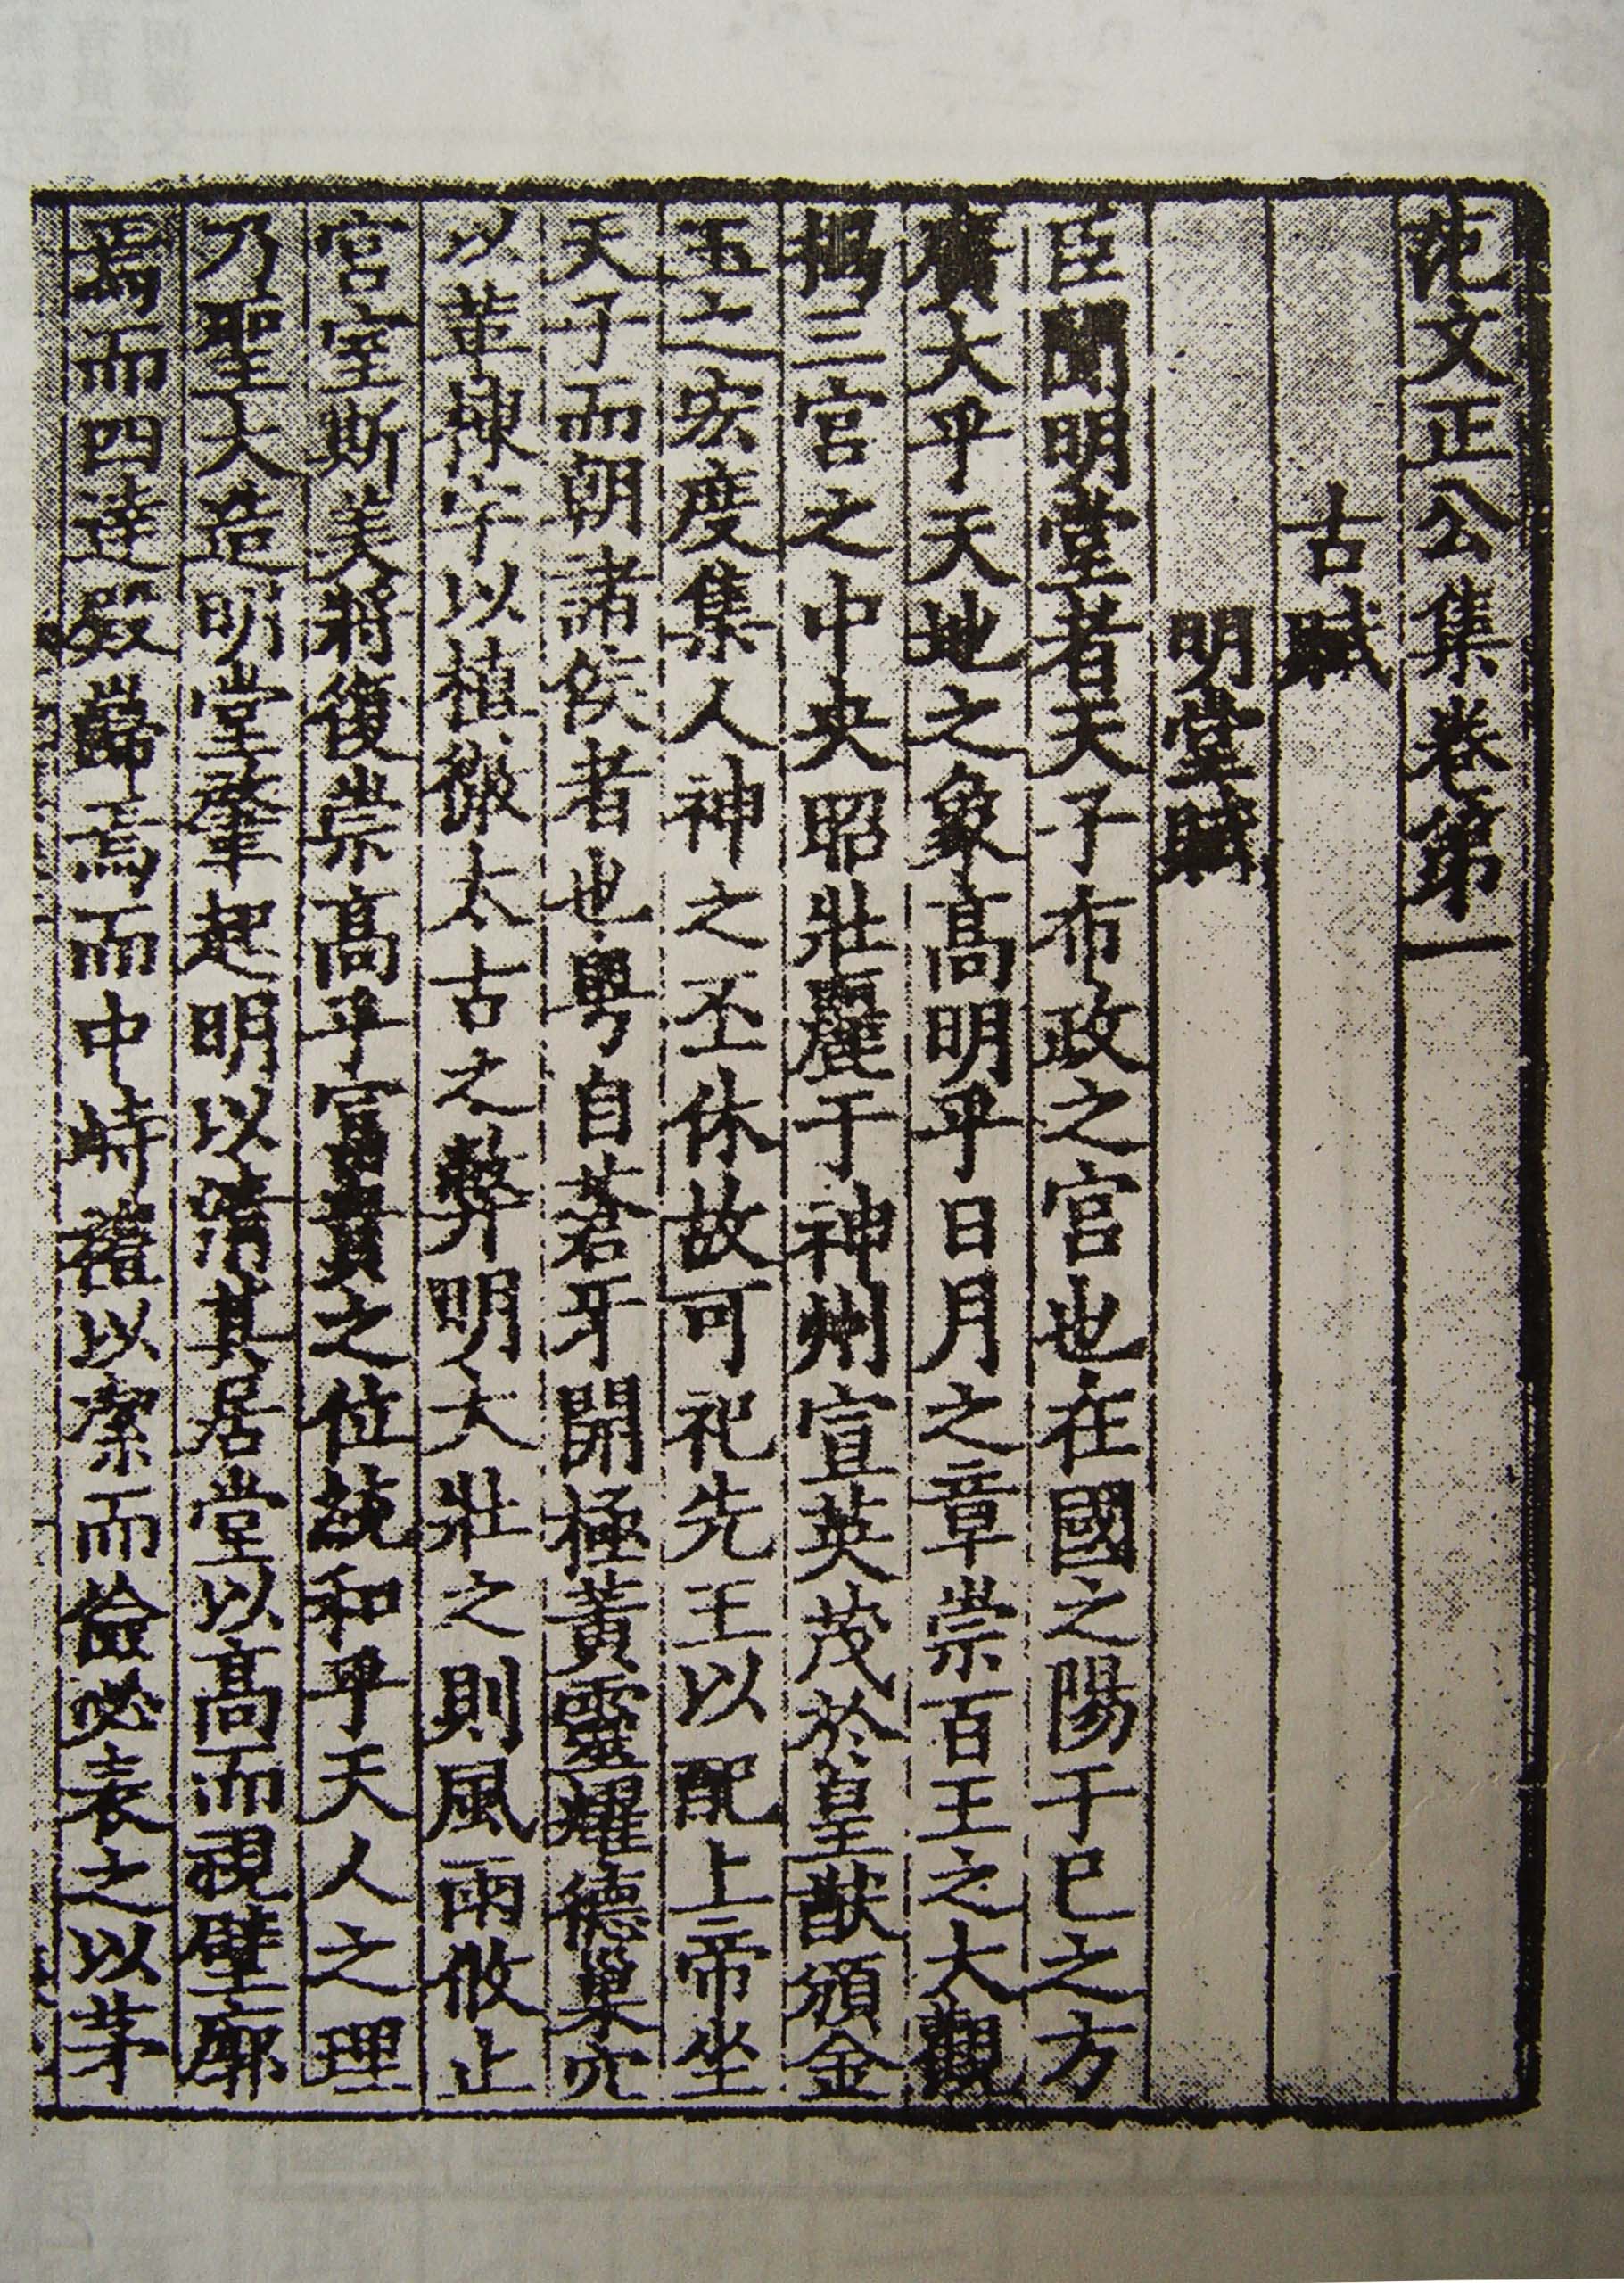 范文正公集卷第一
古賦
明堂賦
臣聞明堂者天子布政之宮也在國之陽于巳之方
廣大乎天地之象高明乎日月之章崇百王之大觀
揭三宮之中央昭壯麗于神州宣英茂於皇猷頒金
玉之宏度集人神之丕休故可祀先王以配上帝坐
天子而朝諸侯者也粵自蒼牙開極黃靈耀德巢穴
以革棟宇以植徹太古之弊明大壯之則風雨攸止
宮室斯美將復崇高乎富貴之位統和乎天人之理
乃聖大造明堂肇起明以清其居堂以高而視壁廓
焉而四達殿巋焉而中峙禮以潔而儉必表之以茅